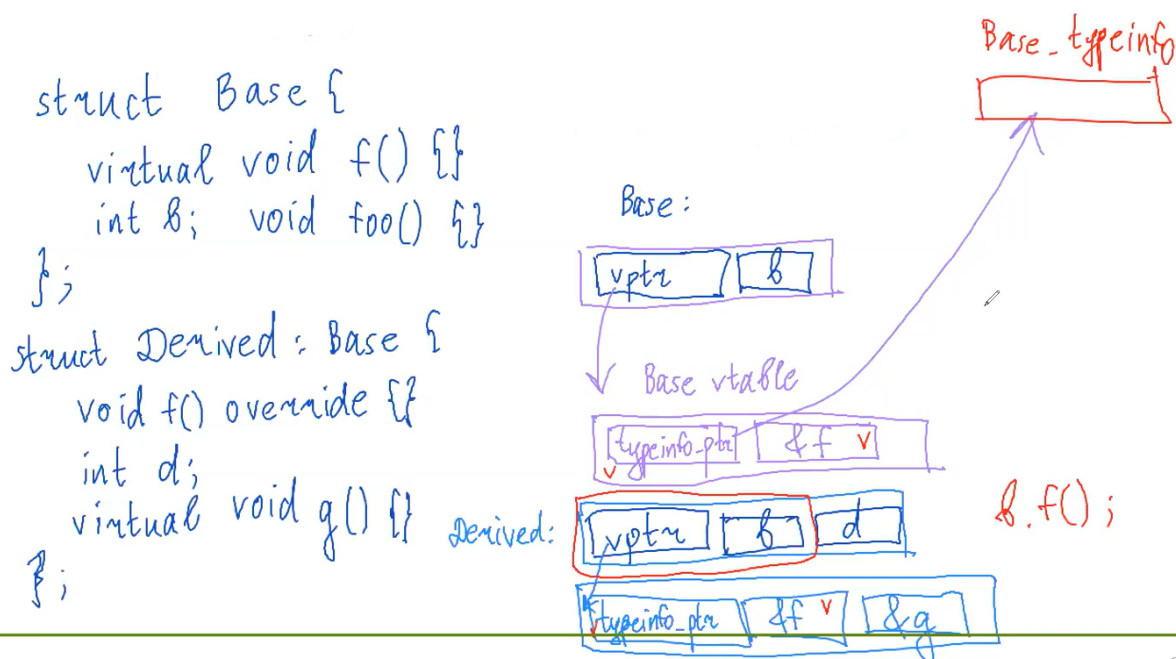 struct Base {
virtual void f() {}
int b; void foo() {}
};
struct Derived : Base {
void f() override {}
int d;
virtual void g() {}
};
Base_typeinfo
Base:
vptr b
Base vtable
typeinfo_ptr &f v
v
Derived:
vptr b d
typeinfo_ptr &f v &g
b.f();